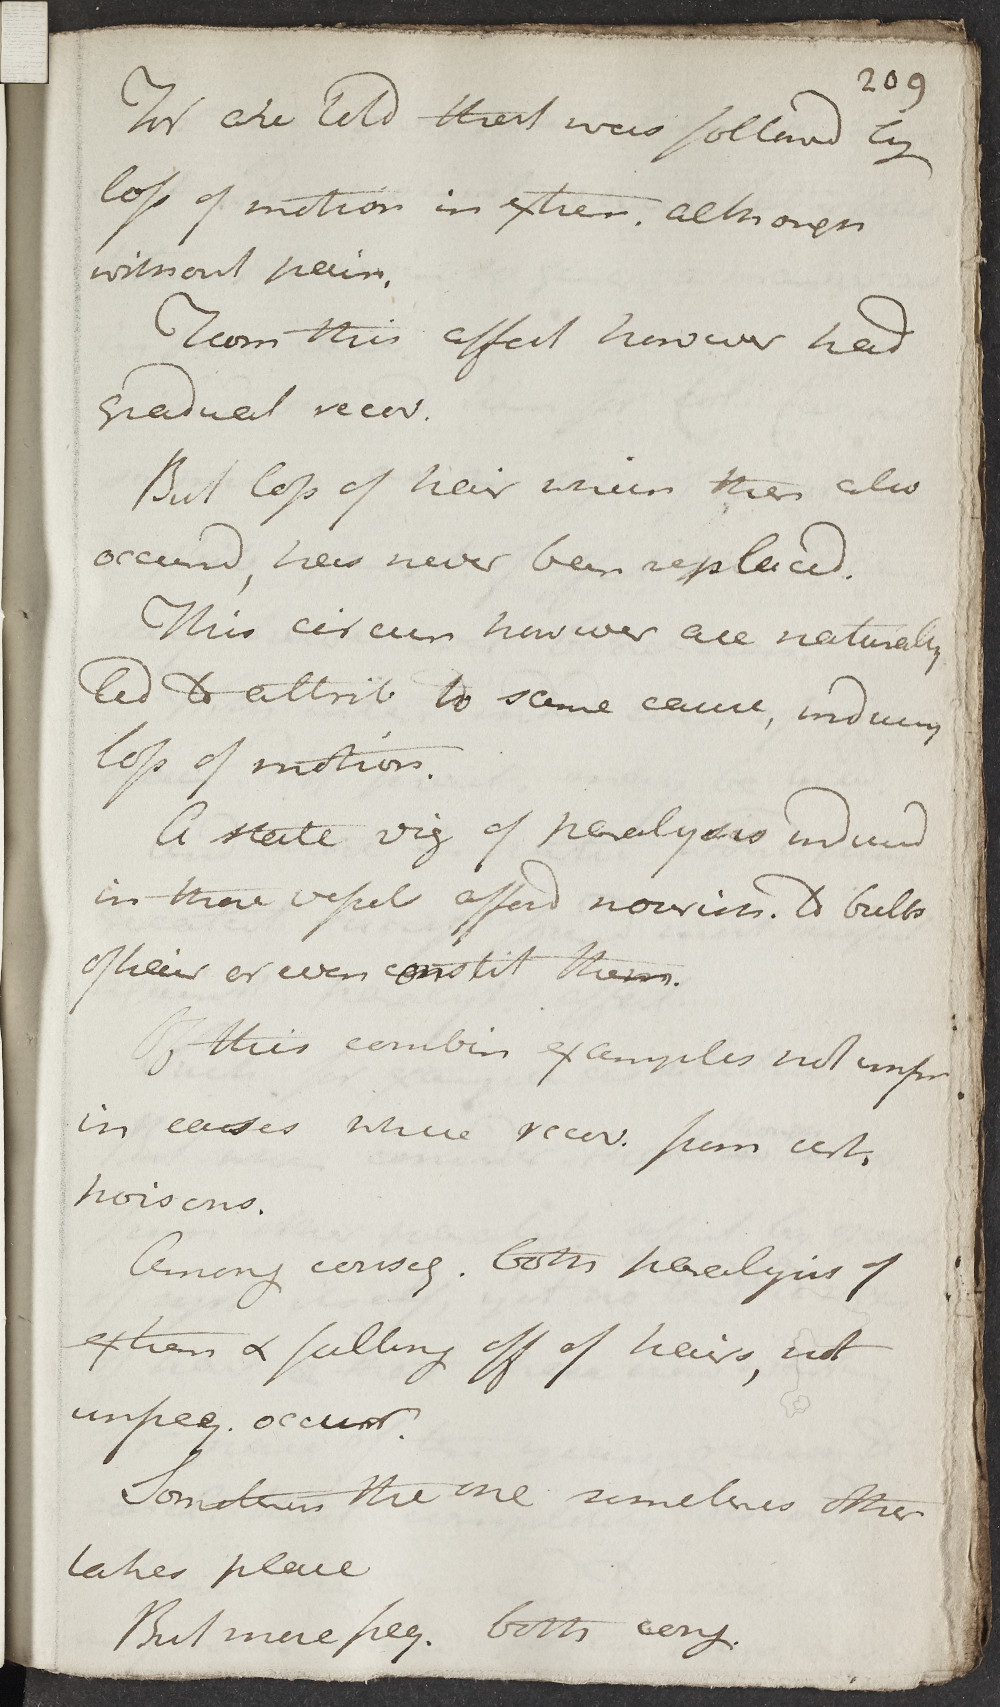 209
For are told that was followd by
loss of motion in extrem. although
without pain.
From this affect however had
gradual recov.
But loss of hair which then also
occurrd, has never been replaced.
This circum however are naturally
led to attrib to same cause, inducing
loss of motion.
A state viz of paralysis inducd
in those vessels afford nourish. to bulbs
of hair or even constit them.
Of this combin examples not unfr
in cases where recov. from cert.
poisons.
Among conseq. both paralysis of
extrem & falling off of hairs, not
unfreq. occur.
Sometimes the one sometimes other
takes place
But more freq. both conj.